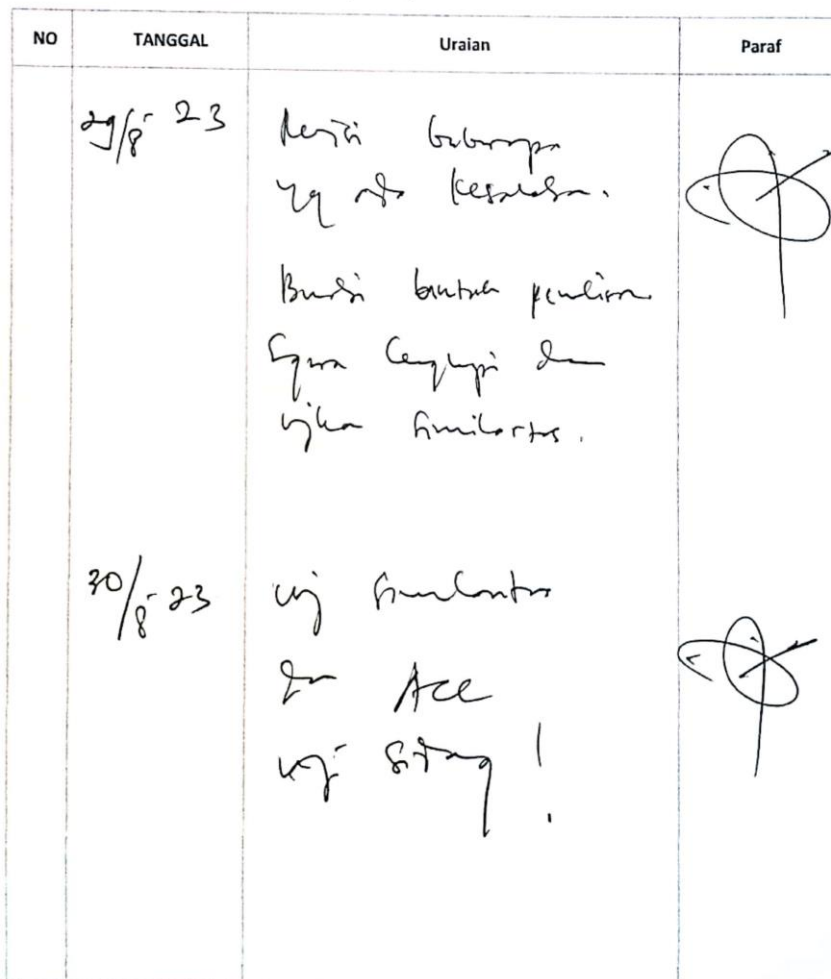 NO TANGGAL Uraian Paraf
29/8-23 Revisi beberapa
yg ada kesalahan.
bentuk penulisan
Segera lengkapi dan
ujikan similaritas.
30/8-23 uji similaritas
dan Acc
uji sidang!